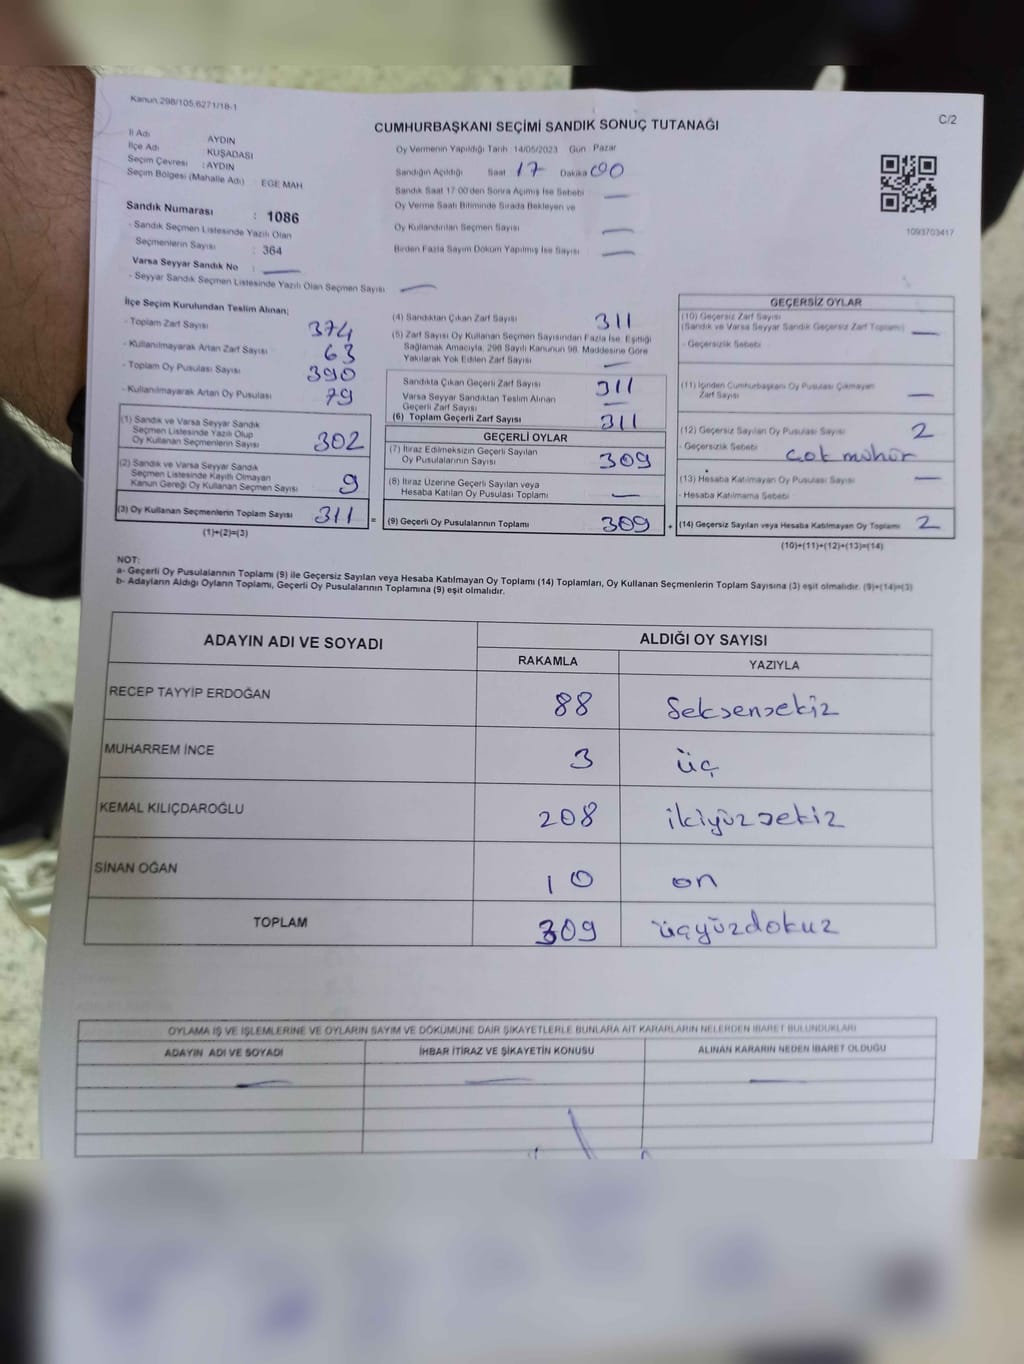 Kanun.298/105,6271/18-1
C/2
CUMHURBAŞKANI SEÇİMİ SANDIK SONUÇ TUTANAĞI
İl Adı AYDIN
İlçe Adı : KUŞADASI
Seçim Çevresi : AYDIN
Seçim Bölgesi (Mahalle Adı) : EGE MAH
Sandık Numarası : 1086
- Sandık Seçmen Listesinde Yazılı Olan
Seçmenlerin Sayısı : 364
Varsa Seyyar Sandık No : —
- Seyyar Sandık Seçmen Listesinde Yazılı Olan Seçmen Sayısı —
Oy Vermenin Yapıldığı Tarih 14/05/2023 Gün Pazar
Sandığın Açıldığı Saat 17 Dakika 00
Sandık Saat 17:00'den Sonra Açımış İse Sebebi —
Oy Verme Saati Bitiminde Sırada Bekleyen ve
Oy Kullandırılan Seçmen Sayısı —
Birden Fazla Sayım Döküm Yapılmış İse Sayısı —
1093703417
İlçe Seçim Kurulundan Teslim Alınan;
- Toplam Zarf Sayısı 374
- Kullanılmayarak Artan Zarf Sayısı 63
- Toplam Oy Pusulası Sayısı 390
- Kullanılmayarak Artan Oy Pusulası 79
(1) Sandık ve Varsa Seyyar Sandık
Seçmen Listesinde Yazılı Olup
Oy Kullanan Seçmenlerin Sayısı 302
(2) Sandık ve Varsa Seyyar Sandık
Seçmen Listesinde Kayıtlı Olmayan
Kanun Gereği Oy Kullanan Seçmen Sayısı 9
(3) Oy Kullanan Seçmenlerin Toplam Sayısı 311 =
(1)+(2)=(3)
(4) Sandıktan Çıkan Zarf Sayısı 311
(5) Zarf Sayısı Oy Kullanan Seçmen Sayısından Fazla İse, Eşitliği
Sağlamak Amacıyla, 298 Sayılı Kanunun 98. Maddesine Göre
Yakılarak Yok Edilen Zarf Sayısı —
Sandıkta Çıkan Geçerli Zarf Sayısı 311
Varsa Seyyar Sandıktan Teslim Alınan
Geçerli Zarf Sayısı —
(6) Toplam Geçerli Zarf Sayısı 311
GEÇERLİ OYLAR
(7) İtiraz Edilmeksizin Geçerli Sayılan
Oy Pusulalarının Sayısı 309
(8) İtiraz Üzerine Geçerli Sayılan veya
Hesaba Katılan Oy Pusulası Toplamı —
(9) Geçerli Oy Pusulalarının Toplamı 309 +
GEÇERSİZ OYLAR
(10) Geçersiz Zarf Sayısı
(Sandık ve Varsa Seyyar Sandık Geçersiz Zarf Toplamı) —
- Geçersizlik Sebebi
(11) İçinden Cumhurbaşkanı Oy Pusulası Çıkmayan
Zarf Sayısı —
(12) Geçersiz Sayılan Oy Pusulası Sayısı 2
- Geçersizlik Sebebi çok mühür
(13) Hesaba Katılmayan Oy Pusulası Sayısı —
- Hesaba Katılmama Sebebi
(14) Geçersiz Sayılan veya Hesaba Katılmayan Oy Toplamı 2
(10)+(11)+(12)+(13)=(14)
NOT:
a- Geçerli Oy Pusulalarının Toplamı (9) ile Geçersiz Sayılan veya Hesaba Katılmayan Oy Toplamı (14) Toplamları, Oy Kullanan Seçmenlerin Toplam Sayısına (3) eşit olmalıdır. (9)+(14)=(3)
b- Adayların Aldığı Oyların Toplamı, Geçerli Oy Pusulalarının Toplamına (9) eşit olmalıdır.
ADAYIN ADI VE SOYADI ALDIĞI OY SAYISI
RAKAMLA YAZIYLA
RECEP TAYYİP ERDOĞAN 88 Seksensekiz
MUHARREM İNCE 3 üç
KEMAL KILIÇDAROĞLU 208 ikiyüzsekiz
SİNAN OĞAN 10 on
TOPLAM 309 üçyüzdokuz
OYLAMA İŞ VE İŞLEMLERİNE VE OYLARIN SAYIM VE DÖKÜMÜNE DAİR ŞİKAYETLERLE BUNLARA AİT KARARLARIN NELERDEN İBARET BULUNDUKLARI
ADAYIN ADI VE SOYADI İHBAR İTİRAZ VE ŞİKAYETİN KONUSU ALINAN KARARIN NEDEN İBARET OLDUĞU
— — —